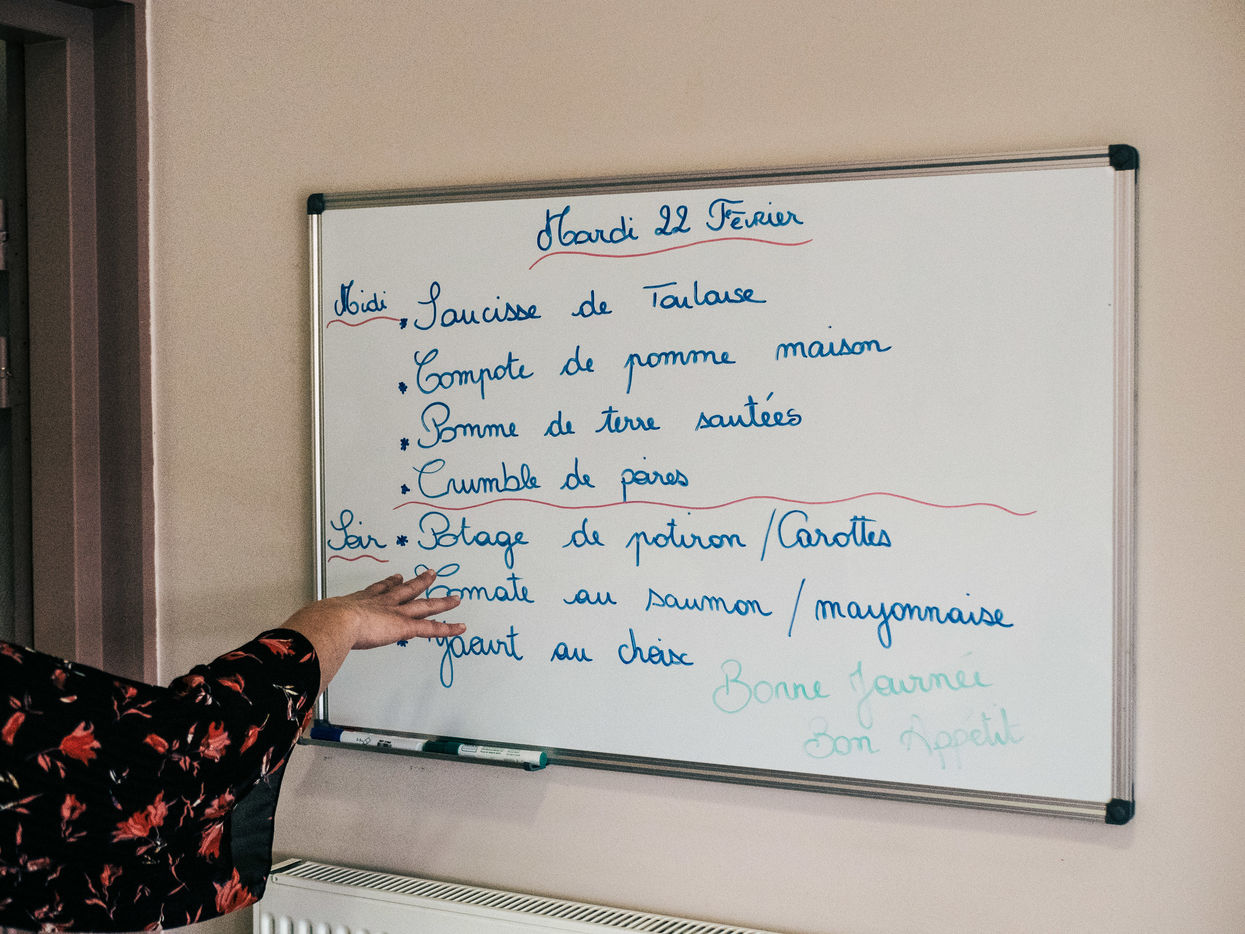 Mardi 22 Février
Midi * Saucisse de Toulouse
* Compote de pomme maison
* Pomme de terre sautées
* Crumble de poires
Soir * Potage de potiron / Carottes
Tomate au saumon / mayonnaise
* Yaourt au choix
Bonne Journée
Bon Appétit